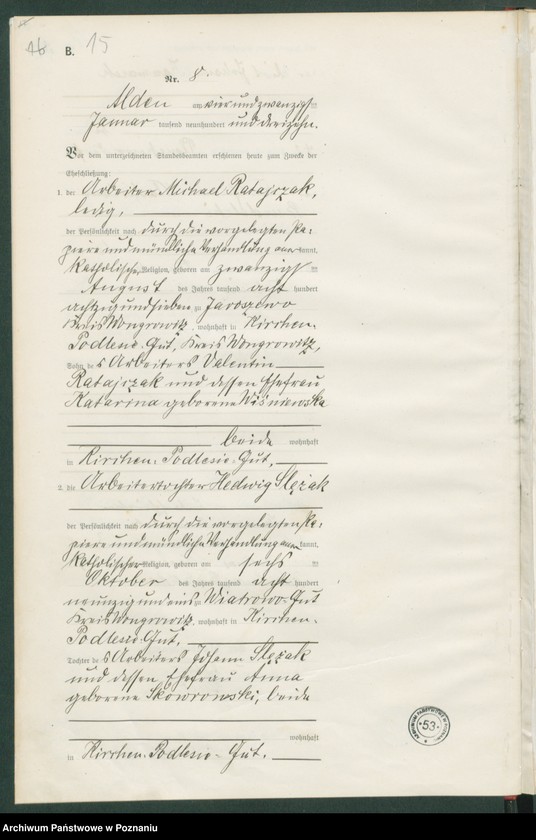 16 B. 15
Nr. 8.
Alden am vierundzwanzigsten
Januar tausend neunhundert und dreizehn.
Vor dem unterzeichneten Standesbeamten erschienen heute zum Zwecke der
Eheschließung:
1. der Arbeiter Michael Ratajczak,
ledig,
der Persönlichkeit nach durch die vorgelegten Pa-
piere und mündliche Verhandlung anerkannt,
katholischer Religion, geboren am zwanzigsten
August des Jahres tausend acht hundert
achtzig und sieben zu Jaroszewo
Kreis Wongrowitz, wohnhaft in Kirchen-
Podlesie-Gut, Kreis Wongrowitz,
Sohn des Arbeiters Valentin
Ratajczak und dessen Ehefrau
Katarina geborene Wiśniewska
beide wohnhaft
in Kirchen-Podlesie-Gut,
2. die Arbeitertochter Hedwig Ślęzak
der Persönlichkeit nach durch die vorgelegten Pa-
piere und mündliche Verhandlung anerkannt,
katholischer Religion, geboren am sechsten
Oktober des Jahres tausend acht hundert
neunzig und eins zu Wiatrowo-Gut
Kreis Wongrowitz, wohnhaft in Kirchen-
Podlesie-Gut,
Tochter des Arbeiters Johann Ślęzak
und dessen Ehefrau Anna
geborene Skowronski, beide
wohnhaft
in Kirchen-Podlesie-Gut.
ARCHIWUM PAŃSTWOWE W POZNANIU
53
Archiwum Państwowe w Poznaniu